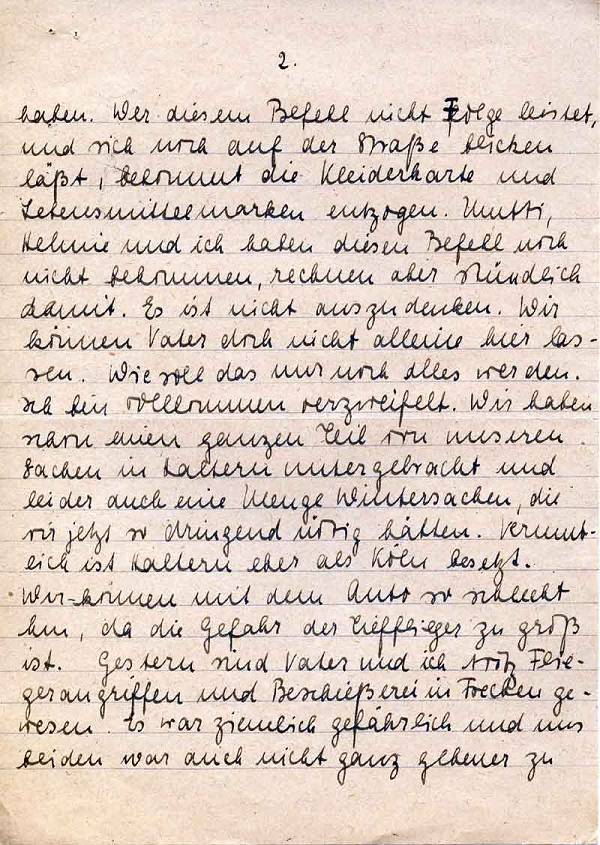 2.
haben. Wer diesem Befehl nicht Folge leistet,
und sich noch auf der Straße blicken
läßt, bekommt die Kleiderkarte und
Lebensmittelmarken entzogen. Mutti,
Helmie und ich haben diesen Befehl noch
nicht bekommen, rechnen aber stündlich
damit. Es ist nicht auszudenken. Wir
können Vater doch nicht alleine hier las-
sen. Wie soll das nur noch alles werden.
Ich bin vollkommen verzweifelt. Wir haben
schon einen ganzen Teil von unseren
Sachen in Kaltern untergebracht und
leider auch eine Menge Wintersachen, die
wir jetzt so dringend nötig hätten. Vermut-
lich ist Kaltern eher als Köln besetzt.
Wir können mit dem Auto so schlecht
hin, da die Gefahr der Tiefflieger zu groß
ist. Gestern sind Vater und ich trotz Flie-
gerangriffen und Beschießerei in Frechen ge-
wesen. Es war ziemlich gefährlich und uns
beiden war auch nicht ganz geheuer zu